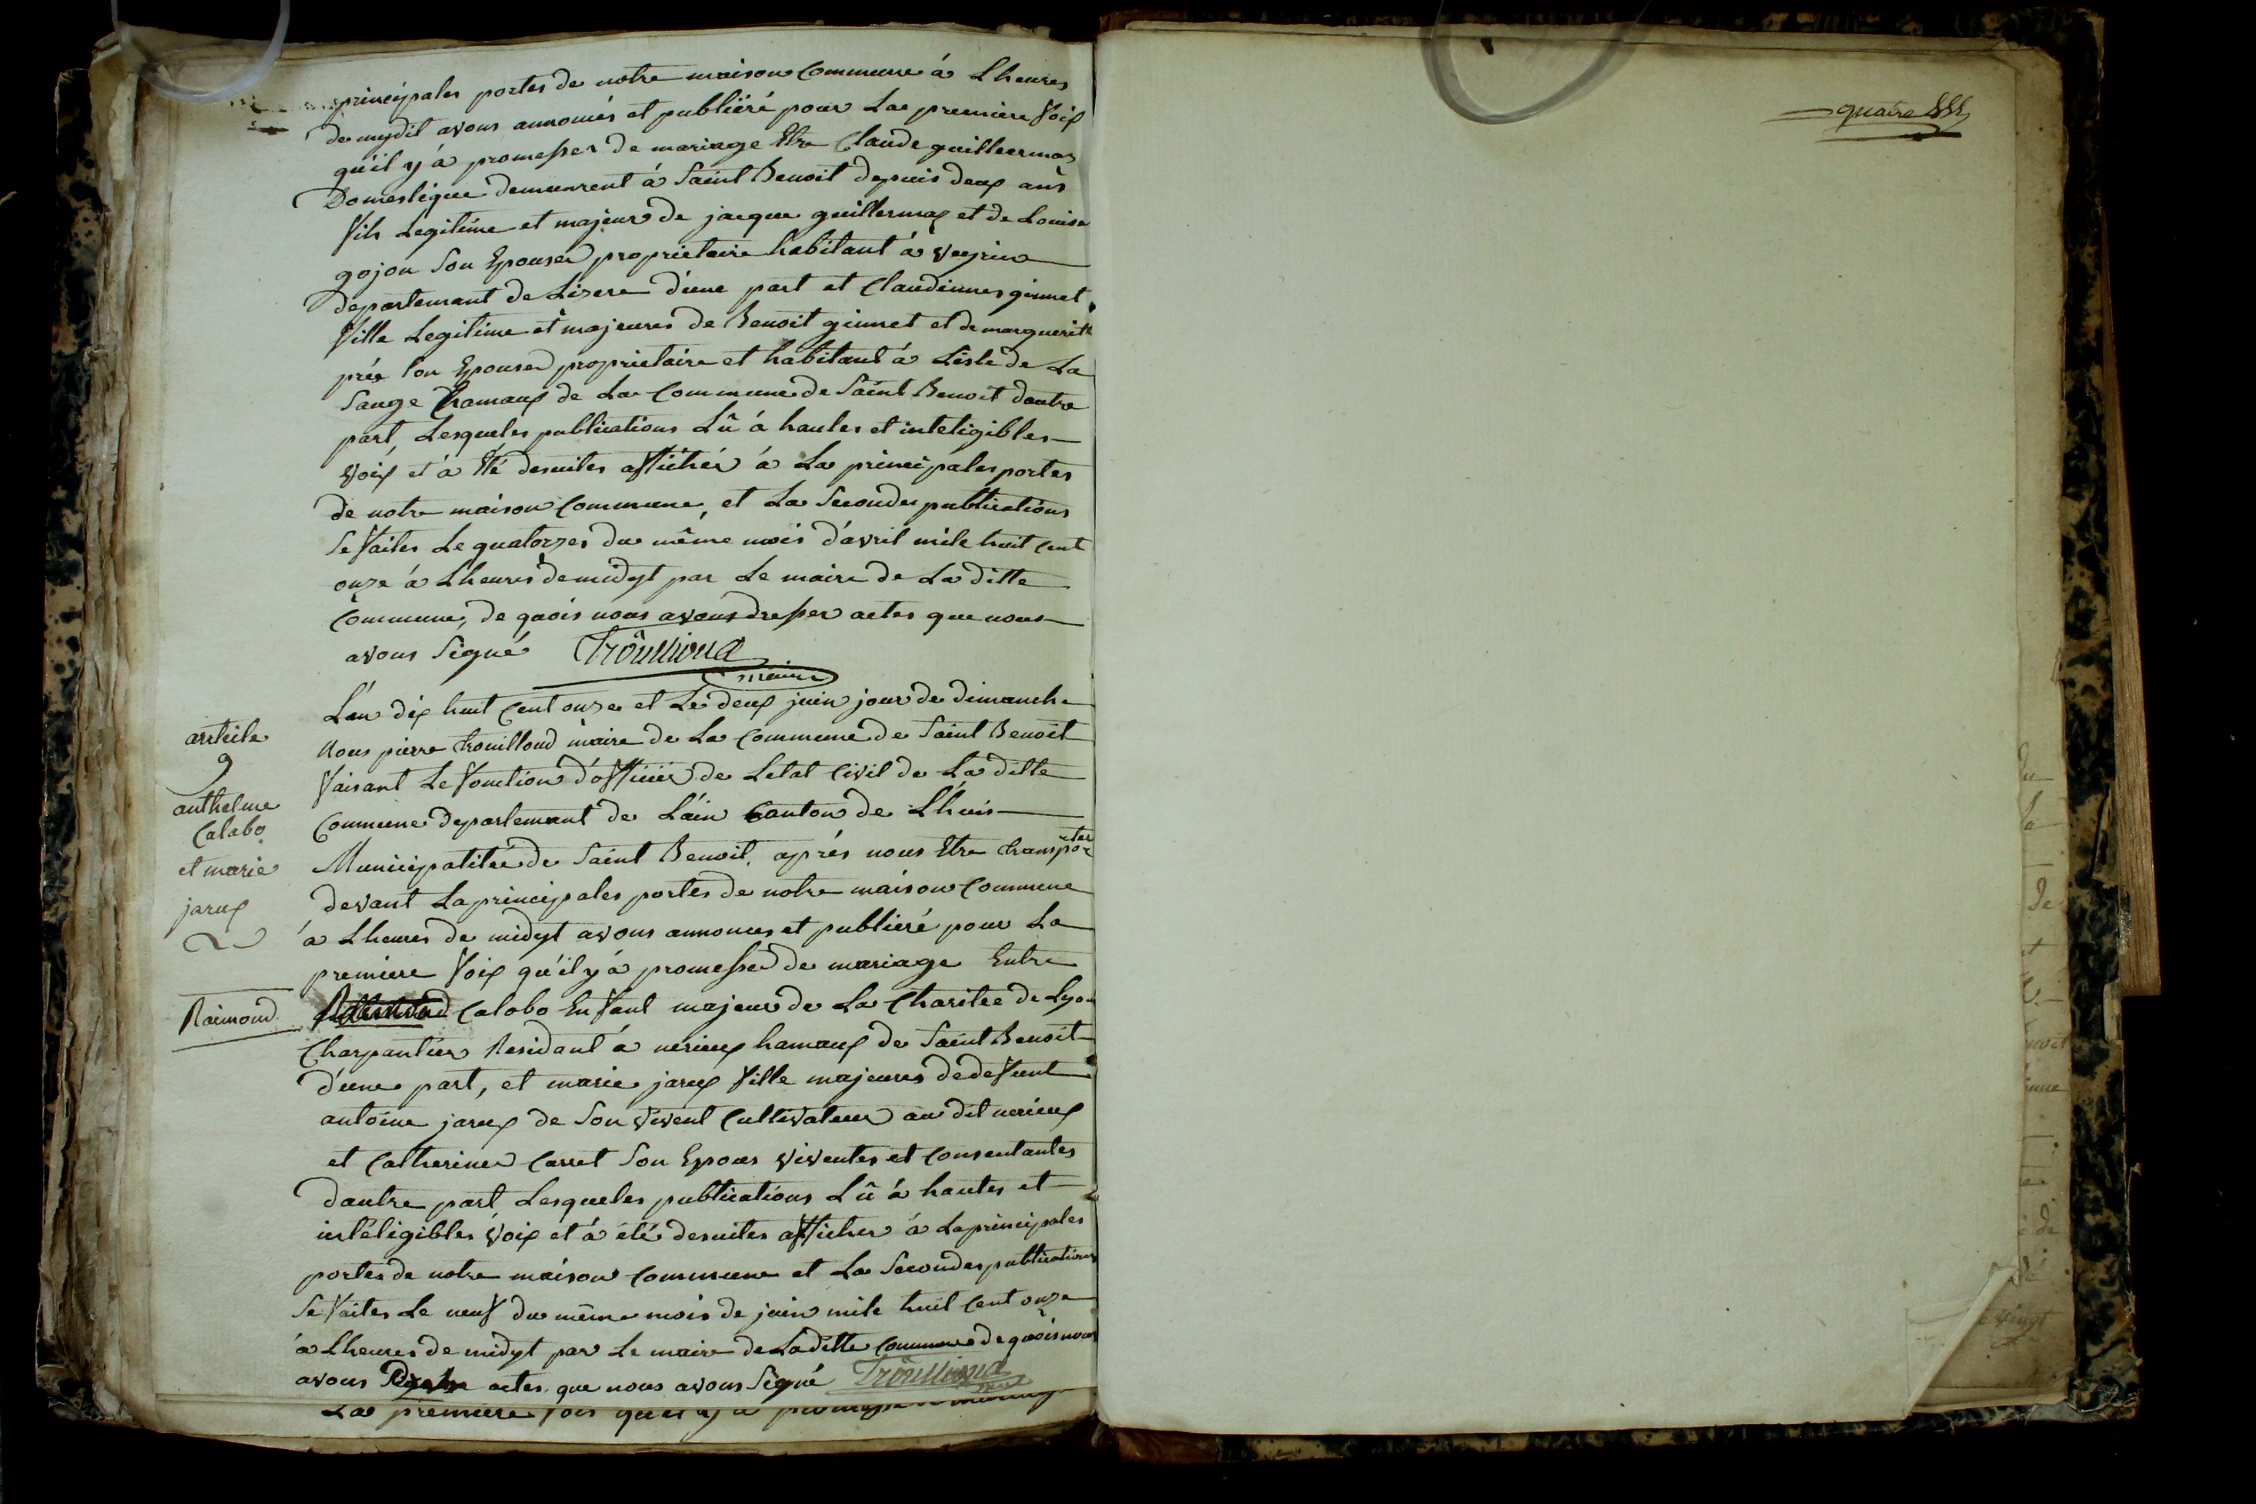 principales portes de notre maison commune á Lheures
de mydit avons annonués et publiéré pour La premiere Voix
qu'il y á promesses de mariage Etre Claude guillermaz
Domestique demeurent á Saint Benoit depuis deux ans
Vils Legitime et majeur de jacque guillermaz et de Louise
gojon Son Epouse proprietaire habitant á veyrin
departemant de Lizere d'une part et Claudinnes ginnet
Ville Legitime et majeures de Benoit ginnet et de marguerite
son Epouse proprietaire et habitant á Lisle de La
Sauge hamaux de La Commune de Saint Benoit dautre
part, Lesqueles publications Lû á hautes et inteligibles
voix et á Eté desuites affichér á La principales portes
de notre maison Commune, et La Secondes publications
Se Vaites Le quatorzes du même mois d'avril mile huit Cent
onze á Lheures de midyt par Le maire de La ditte
Commune, de quois nous avons dresser actes que nous
avons Signé Trôullioud
maire
L'an dix huit Cent onze et Le deux juin jour de dimanche
Nous pierre trouilloud maire de La Commune de Saint Benoit
Vaisant Le Vonction d'officier de Letat Civil de La ditte
Commune departemant de L'ain Canton de Lhuis
Municipalitée de Saint Benoit, aprés nous Etre transporter
devant La principales portes de notre maison Commune
á Lheures de midyt avons annonces et publieré pour La
premiere Voix qu'il y á promesse de mariage Entre
Calabo EnVant majeur de La Charitée de Lyon
Charpantier Residant á nerieux hamaux de Saint Benoit
d'une part, et marie jarux Ville majeures de deVunt
antoine jarux de Son vivent Cultivateur au dit nerieux
et Catherines Carret Son Epoues viventes et Consentantes
dautre part Lesqueles publications Lû á hautes et
intéligibles voix et á été desuites afficher á La principales
portes de notre maison Commune et La Secondes publications
Se Vaites Le neuf du même mois de juin mile huit Cent onze
á Lheures de midyt par Le maire de La ditte Commune de quois nous
avons actes que nous avons Signé Trôullioud
La premiere fois
article
9
anthelme
Calabo
et marie
jarux
Raimond
quatre